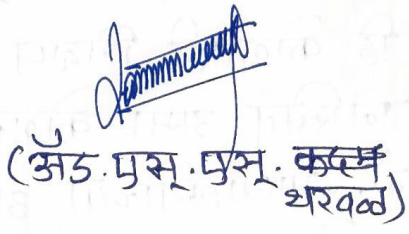 (ॲड. एस्. एस्. कदम
थरवळ)